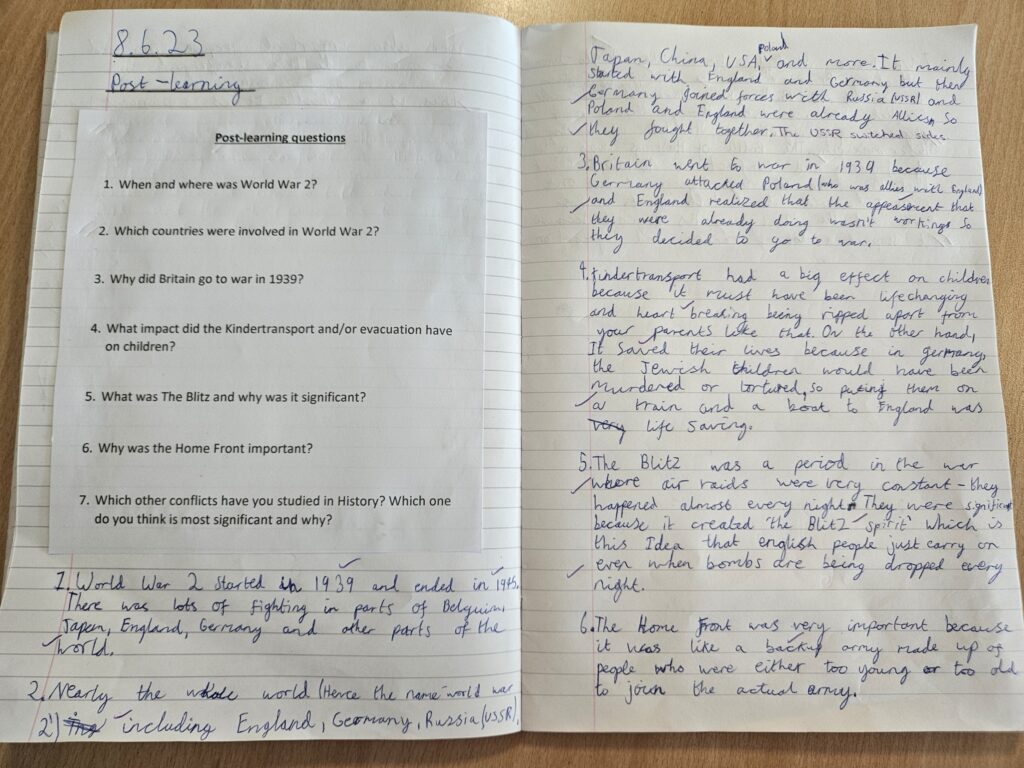 8.6.23
Post-learning
Post-learning questions
1. When and where was World War 2?
2. Which countries were involved in World War 2?
3. Why did Britain go to war in 1939?
4. What impact did the Kindertransport and/or evacuation have
on children?
5. What was The Blitz and why was it significant?
6. Why was the Home Front important?
7. Which other conflicts have you studied in History? Which one
do you think is most significant and why?
1. World War 2 started in 1939 and ended in 1945.
There was lots of fighting in parts of Belguim,
Japan, England, Germany and other parts of the
world.
2. Nearly the whole world (Hence the name world war
2) including England, Germany, Russia (USSR),
Japan, China, USA, Poland and more. It mainly
started with England and Germany but then
Germany joined forces with Russia (USSR) and
Poland and England were already Allies so
they fought together. The USSR switched sides
3. Britain went to war in 1939 because
Germany attacked Poland (who was allies with England)
and England realized that the appeasment that
they were already doing wasn't workings so
they decided to go to war.
4. Kindertransport had a big effect on children
because it must have been lifechanging
and heart breaking being ripped apart from
your parents like that. On the other hand,
It saved their lives because in germany,
the Jewish children would have been
murdered or tortured, so puting them on
a train and a boat to England was
very life saving.
5. The Blitz was a period in the war
where air raids were very constant - they
happened almost every night. They were significant
because it created 'the Blitz spirit' which is
this Idea that english people just carry on
even when bombs are being dropped every
night.
6. The Home Front was very important because
it was like a backup army made up of
people who were either too young or too old
to join the actual army.